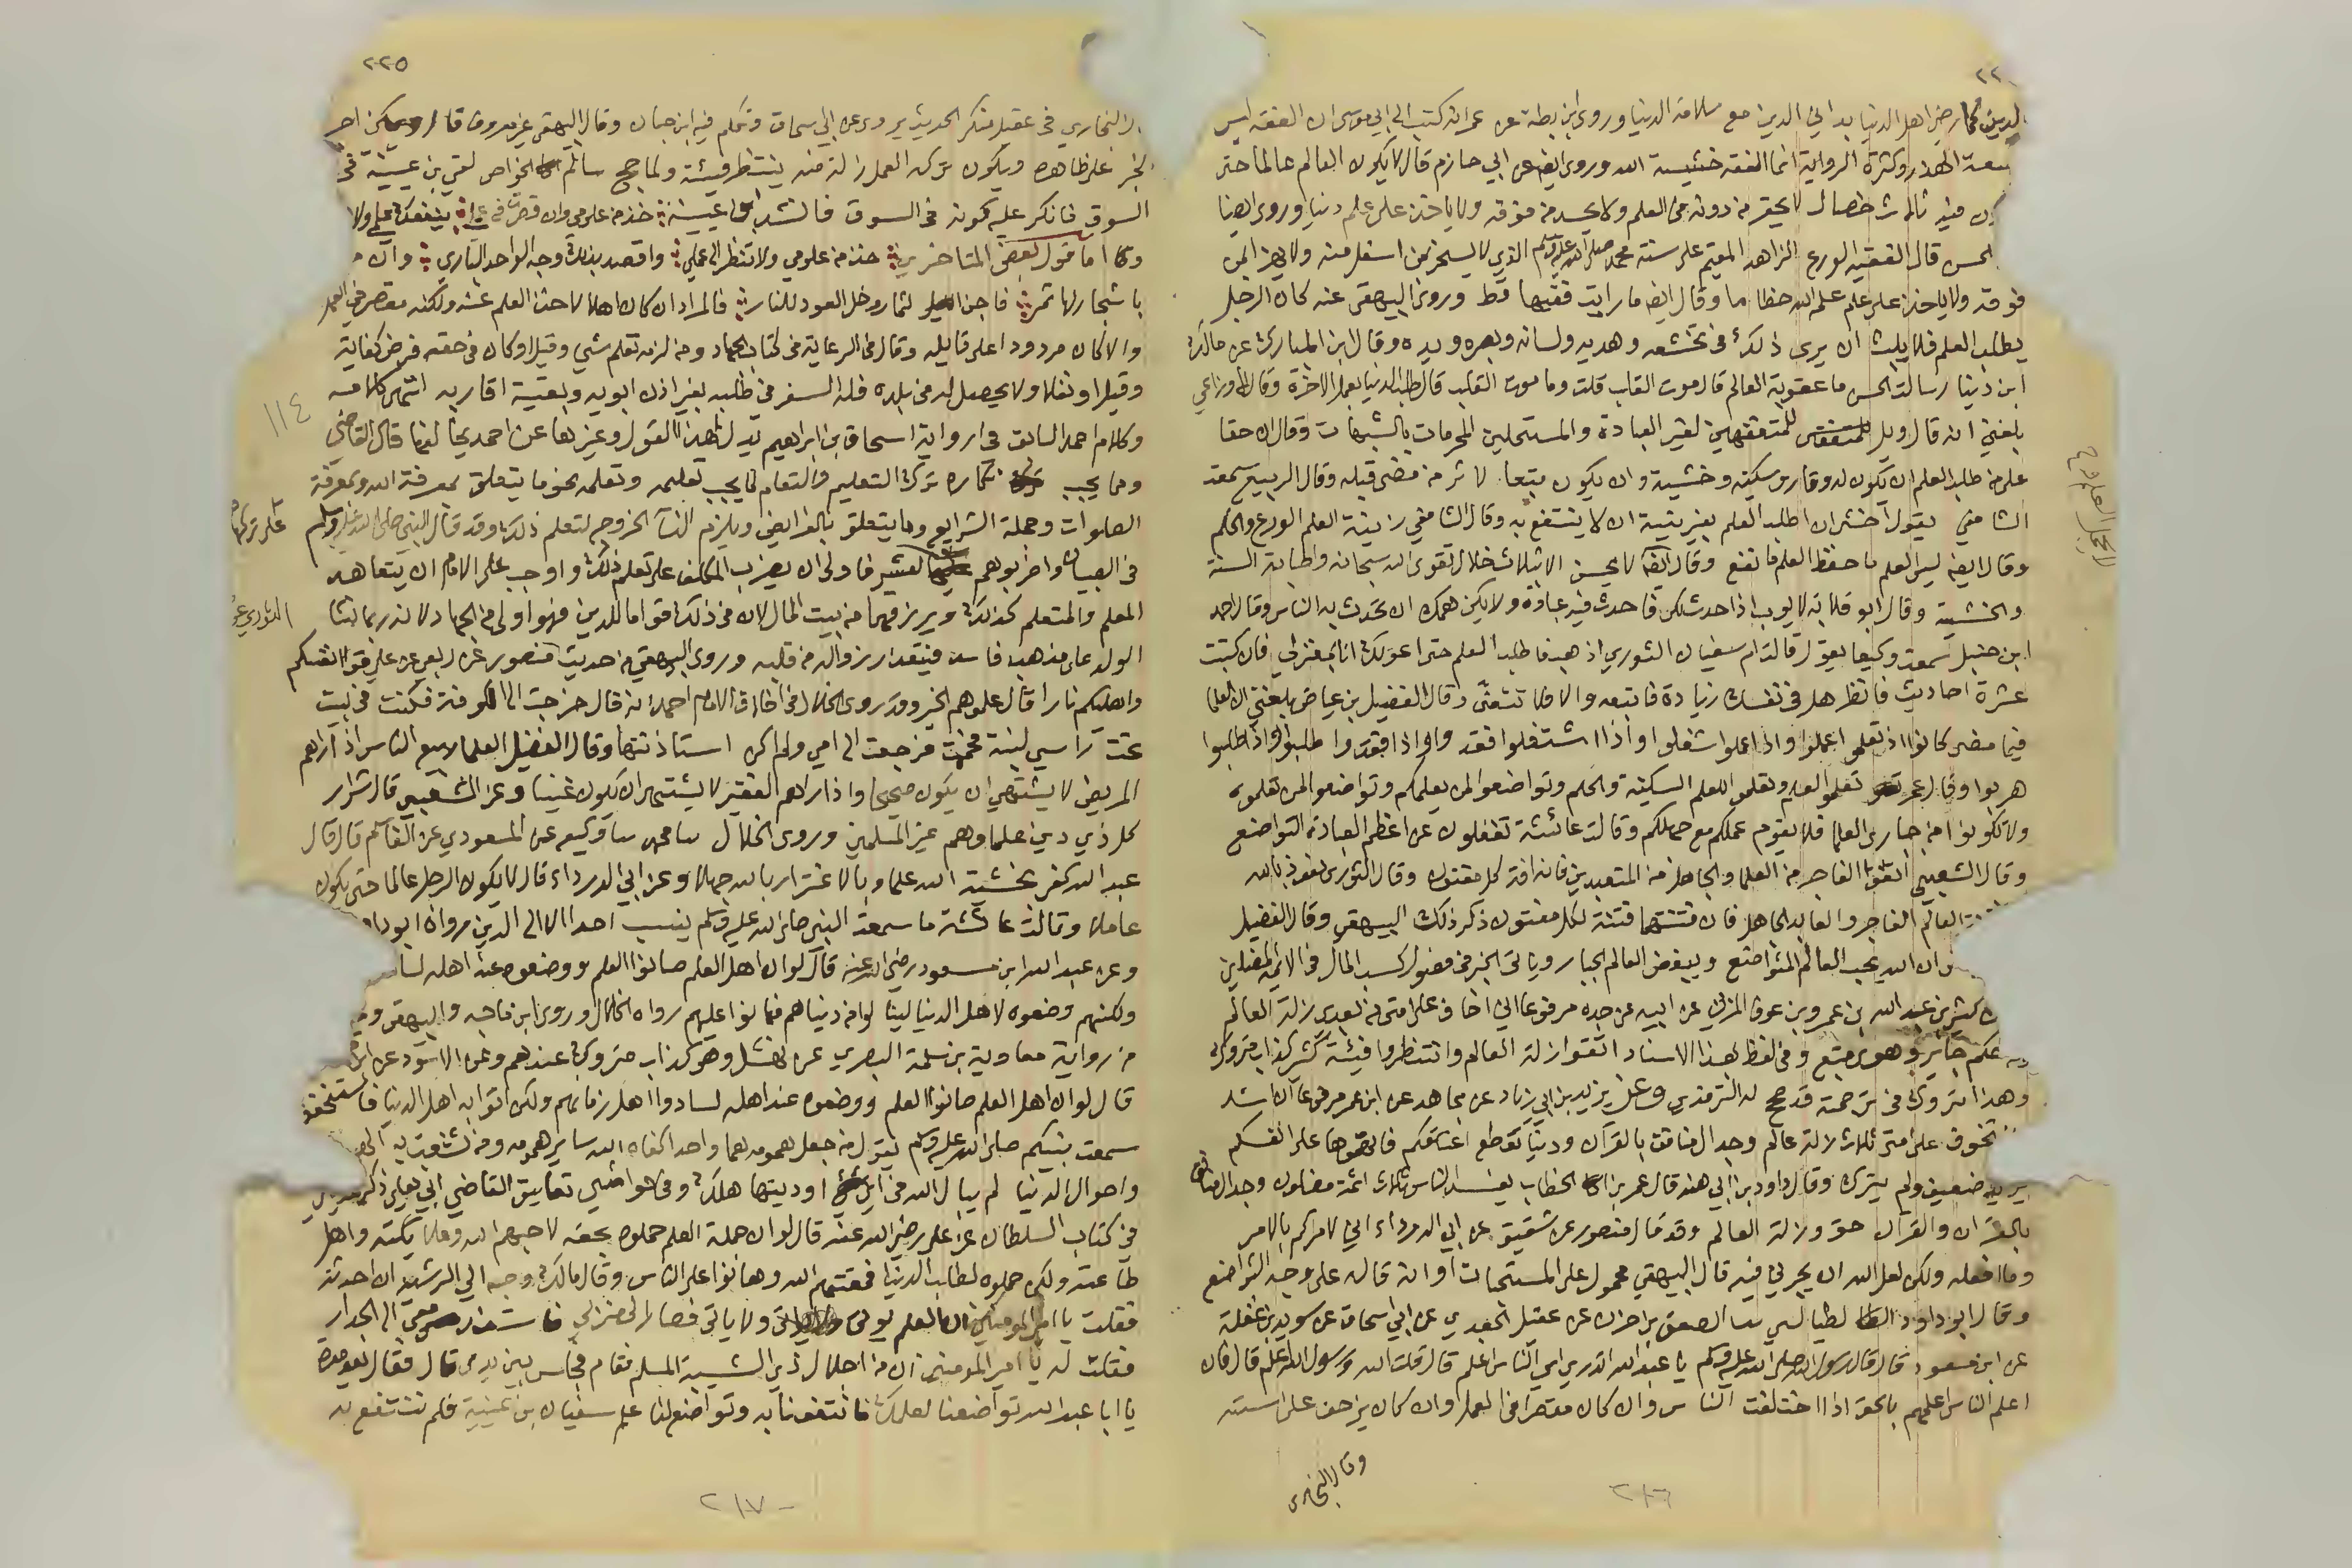 ٢٢
الدين كما رضي اهل الدنيا بدا اني الدين مع سلامة الدنيا وروى ابن بطة عن عمر انه كتب الى ابي موسى ان الفقه ليس
بسعة الهذر وكثرة الرواية انما الفقه خشيسة الله وروى ايضا عن ابي حازم قال لا يكون العالم عالما حتى
يكون فيه ثلاث خصال لا يحقر من دونه في العلم ولا يحسد من فوقه ولا ياخذ على علم دنيا وروى ايضا
الحسن قال الفقيه الورع الزاهد المقيم على سنة محمد صلى الله عليه وسلم الذي لا يسخر بمن اسفل منه ولا يهزا بمن
فوقه ولا ياخذ على علم علمه الله حطاما وقال ايضا ما رايت فقيها قط وروى البيهقي عنه كان الرجل
يطلب العلم فلا يلبث ان يرى ذلك في تخشعه وهديه ولسانه وبصره ويده وقال ابن المبارك عن مالك
ابن دينار سالت الحسن ما عقوبة العالم قال موت القلب قلت وما موت القلب قال طلب الدنيا بعمل الاخرة وقال الاوزاعي
بلغني انه قال ويل للمتفقهين لغير العبادة والمستحلين المحرمات بالشبهات وقال ان حقا
على من طلب العلم ان يكون له وقار وسكينة وخشية وان يكون متبعا لاثر من مضى قبله وقال الربيع سمعت
الشافعي يقول اخشى ان اطلب العلم بغير نية ان لا ينتفع به وقال الشافعي زينة العلم الورع والحلم
وقال ايضا ليس العلم ما حفظ العلم ما نفع وقال ايضا لا يحسن الا بثلاث خلال تقوى الله سبحانه واصابة السنة
والخشية وقال ابو قلابة لايوب اذا احدث لك علما فاحدث فيه عبادة ولا يكن همك ان تحدث به الناس وقال احمد
ابن حنبل سمعت وكيعا يقول قالت ام سفيان الثوري اذهب فاطلب العلم حتى اعولك انا بمغزلي فان كتبت
عشرة احاديث فانظر هل في نفسك زيادة فاتبعه والا فلا تتعنى وقال الفضيل بن عياض بلغني ان العلما
فيما مضى كانوا اذا تعلموا عملوا واذا عملوا شغلوا واذا اشتغلوا فقدوا واذا فقدوا طلبوا واذا طلبوا
هربوا وقال عمر تعلموا العلم وتعلموا للعلم السكينة والحلم وتواضعوا لمن يعلمكم وتواضعوا لمن تعلمونه
ولا تكونوا من جبارى العلما فلا يقوم علمكم مع جهلكم وقالت عائشة تغفلون عن اعظم العبادة التواضع
وقال الشعبي اتقوا الفاجر من العلما والجاهل من المتعبدين فانه افة كل مفتون وقال الثوري نعوذ بالله
من فتنة العالم الفاجر والعابد الجاهل فان فتنتهما فتنة لكل مفتون ذكر ذلك البيهقي وقال الفضيل
ان الله يحب العالم المتواضع ويبغض العالم الجبار وياتي الخبر في فضول كسب المال في الائمة المضلين
كثير بن عبد الله بن عمرو بن عوف المزني عن ابيه عن جده مرفوعا اني اخاف على امتي من بعدي زلة العالم
حكم جاير وهوى متبع وفي لفظ بهذا الاسناد اتقوا زلة العالم وانتظروا فيئته كثير كذاب متروك
وهذا متروك في ترجمة قد صحح له الترمذي وعن يزيد بن ابي زياد عن مجاهد عن ابن عمر مرفوعا ان اشد
ما اتخوف على امتي ثلاث زلة عالم وجدال منافق بالقرآن ودنيا تقطع اعناقكم فاتهموها على انفسكم
يزيد ضعيف ولم يترك وقال داود بن ابي هند قال عمر بن الخطاب يفسد الناس ثلاث ائمة مضلون وجدال المنافق
بالقران والقران حق وزلة العالم وقد قال منصور عن شقيق عن ابي الدرداء اني لامركم بالامر
وما افعله ولكن لعل الله ان يجرني فيه قال البيهقي محمول على المستحبات او انه قاله على وجه التواضع
وقال ابو داود الطيالسي ثنا الصعق بن حزن عن عقيل الجعدي عن ابي اسحاق عن سويد بن غفلة
عن ابن مسعود قال قال رسول الله صلى الله عليه وسلم يا عبد الله اتدري اي الناس اعلم قال قلت الله ورسوله اعلم قال فان
اعلم الناس اعلمهم بالحق اذا اختلفت الناس وان كان مقصرا في العمل وان كان يزحف على استه
وقال البخاري
٢١٦
٢٢٥
قال البخاري في عقيل منكر الحديث يروي عن ابي سحاق وتكلم فيه ابن حبان وقال البيهقي غير معروف قال ويمكن اجرا
الخبر على ظاهره ويكون ترك العمل زلة منه ينتظر فيئته ولما حج سالم الخواص لقي بن عيينة في
السوق فانكر عليه كونه في السوق فانشد ابن عيينة خذ من علمي وان قصرت في عملي ينفعك علمي ولا
وكا اما قول بعض المتاخرين خذ من علومي ولا تنظر الى عملي واقصد بذلك وجه الواحد الباري وان م
باشجار لها ثمر فاجن الثمار وخل العود للنار فالمراد ان كان اهلا لاخذ العلم عنه ولكنه مقصر في العمل
والا كان مردودا على قايله وقال في الرعاية في كتاب الجهاد ومن لزمه تعلم شي وقيل او كان في حقه فرض كفاية
وقيل او نفلا ولا يحصل له في بلده فله السفر في طلبه بغير اذن ابويه وبقية اقاربه انتهى كلامه
وكلام احمد السابق في رواية اسحاق بن ابراهيم يدل لهذا القول وغيرها عن احمد يخالفها قال القاضي
ومما يجب انكاره ترك التعليم والتعلم لما يجب تعليمه وتعلمه نحو ما يتعلق بمعرفة الله وبمعرفة
الصلوات وجملة الشرايع وما يتعلق بالفرايض ويلزم النساء الخروج لتعلم ذلك وقد قال النبي صلى الله عليه وسلم
في الصبيان واضربوهم على تركها لعشر فاولى ان يضرب المكلف على تعلم ذلك واوجب على الامام ان يتعاهد
المعلم والمتعلم كذلك ويرزقهما من بيت المال لان في ذلك قواما للدين فهو اولى من الجهاد لانه ربما نشا
الولد على مذهب فاسد فيتعذر زواله من قلبه وروى البيهقي من حديث الثوري عن منصور عن ربعي عن علي قوا انفسكم
واهليكم نارا قال علموهم الخير وقد روى الخلال في اخلاق الامام احمد انه قال خرجت الى الكوفة فكنت في بيت
تحت راسي لبنة فحممت فرجعت الى امي ولم اكن استاذنتها وقال الفضيل العلما ربيع الناس اذا راهم
المريض لا يشتهي ان يكون صحيحا واذا راهم الفقير لا يشتهي ان يكون غنيا وعن الشعبي قال شرار
كل ذي دين علماوهم غير المسلمين وروى الخلال ثنا محمد ثنا وكيع عن المسعودي عن القاسم قال قال
عبد الله كفى بخشية الله علما وبالاغترار بالله جهلا وعن ابي الدرداء قال لا يكون الرجل عالما حتى يكون
عاملا وقالت عائشة ما سمعت النبي صلى الله عليه وسلم ينسب احدا الا الى الدين رواه ابو داود
وعن عبد الله ابن مسعود رضي الله عنه قال لو ان اهل العلم صانوا العلم ووضعوه عند اهله لسا
ولكنهم وضعوه لاهل الدنيا لينالوا من دنياهم فهانوا عليهم رواه الخلال وروى ابن ماجه والبيهقي
من رواية معاوية بن سلمة البصري عن نهشل وهو كذاب متروك عندهم وعن الاسود عن ابن
قال لو ان اهل العلم صانوا العلم ووضعوه عند اهله لسادوا اهل زمانهم ولكن اتوا به اهل الدنيا فاستخفوا
سمعت نبيكم صلى الله عليه وسلم يقول من جعل همومه هما واحدا كفاه الله ساير همومه ومن تشعبت به الهموم
واحوال الدنيا لم يبال الله في اي اوديتها هلك وفي حواشي تعاليق القاضي ابي يعلى ذكر
في كتاب السلطان عن علي رضي الله عنه قال لو ان حملة العلم حملوه بحقه لاحبهم الله وملائكته واهل
طاعته ولكن حملوه لطلب الدنيا فمقتهم الله وهانوا على الناس وقال مالك وجه الي الرشيد ان احدثه
فقلت يا امير المومنين ان العلم يوتى ولا ياتي فصار الى منزلي فاستند معي الى الجدار
فقلت له يا امير المومنين ان من اجلال الله اجلال ذي الشيبة المسلم فقام فجلس بين يدي قال فقال بعد مدة
يا ابا عبد الله تواضعنا لعلمك فانتفعنا به وتواضع لنا علم سفيان بن عيينة فلم ننتفع به
١١٤
على تركها
الثوري عن
٢١٧